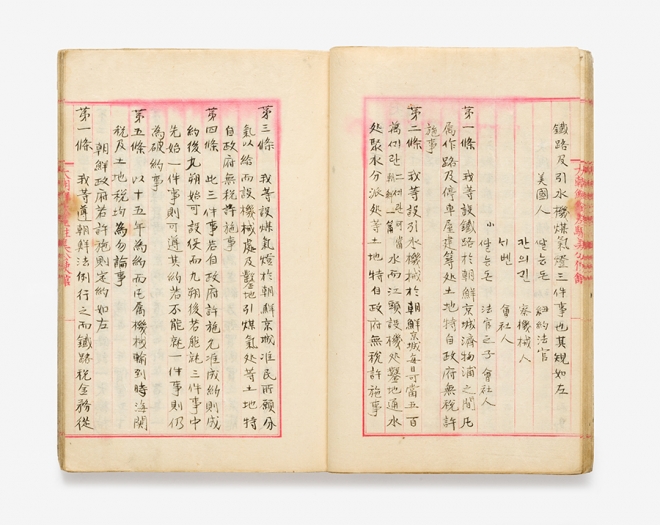 鐵路及引水機煤氣燈三件事也其規如左
美國人 쌀능돈 紐約法官
칸의린 察機械人
뉘벤 會社人
小쌀능돈 法官之子 會社人
第一條 我等設鐵路於朝鮮京城濟物浦之間凡
屬作路及停車屋建築處土地特自政府無税許
施事
第二條 我等設引水機械於朝鮮京城每日可當五百
萬 水而江頭設機處鑿地通水
處聚水分派處等土地特自政府無税許施事
第三條 我等設煤氣燈於朝鮮京城准民所願分
氣以給而設機械處及鑿地引煤氣處等土地特
自政府無税許施事
第四條 此三件事若自政府許施允准成約則成
約後九朔始可設役而九朔後若能就三件事中
先始一件事則可遵其約若不能就一件事則仍
為破約事
第五條 以十五年為約而凡屬機械輸到時海關
税及土地税均為勿論事
朝鮮政府若許施則定約如左
第一條 我等遵朝鮮法例行之而鐵路税金務從